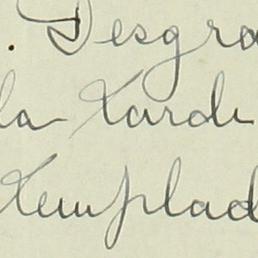 . Desgra
la tarde
templad